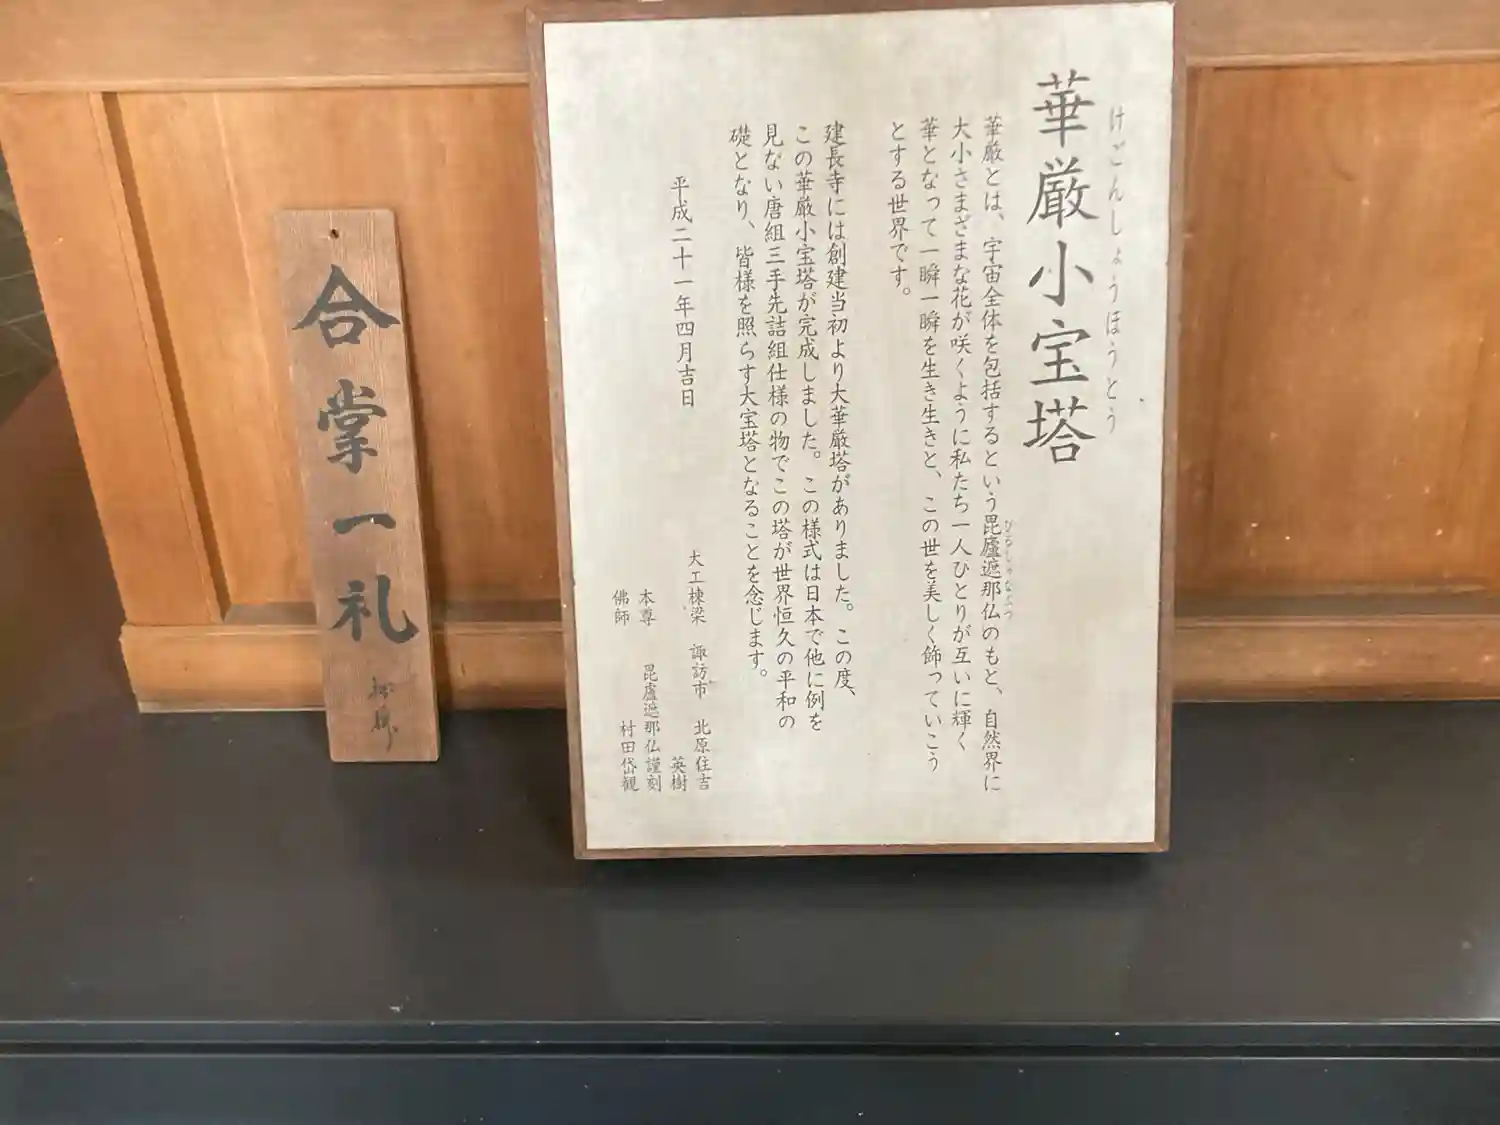 けごんしょうほうとう
華厳小宝塔
華厳とは、宇宙全体を包括するという毘廬遮那仏のもと、自然界に
びるしゃなぶつ
大小さまざまな花が咲くように私たち一人ひとりが互いに輝く
華となって一瞬一瞬を生き生きと、この世を美しく飾っていこう
とする世界です。
建長寺には創建当初より大華厳塔がありました。この度、
この華厳小宝塔が完成しました。この様式は日本で他に例を
見ない唐組三手先詰組仕様の物でこの塔が世界恒久の平和の
礎となり、皆様を照らす大宝塔となることを念じます。
平成二十一年四月吉日
大工棟梁 諏訪市 北原住吉
英樹
本尊 毘廬遮那仏謹刻
佛師 村田岱観
合掌一礼